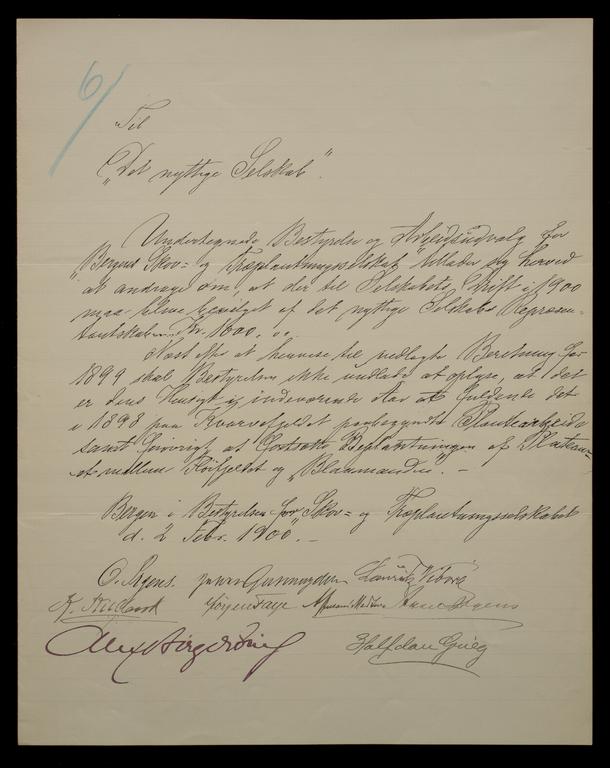 6/
Til
„Det nyttige Selskab".
Undertegnede Bestyrelse og Arbeidsudvalg for
„Bergens Skov- og Træplantningsselskab" tillader sig herved
at andrage om, at der til Selskabets Drift i 1900
maa blive bevilget af det nyttige Selskabs Repræsen-
tantskab Kr. 1600.00.
Næst efter at henvise til vedlagte Beretning for
1899 skal Bestyrelsen ikke undlade at oplyse, at det
er dens Hensigt i indeværende Aar at fuldende det
i 1898 paa Kvarvefjeldet paabegyndte Plantearbeide
samt forøvrigt at fortsætte Beplantningen af Plateau-
et mellem Fløifjeldet og „Blaamanden". —
Bergen i Bestyrelsen for „Skov- og Træplantningsselskabet
d. 2 Febr. 1900. —
O. Irgens. Gunnufsen
Jørgen Faye Irgens
Halfdan Grieg